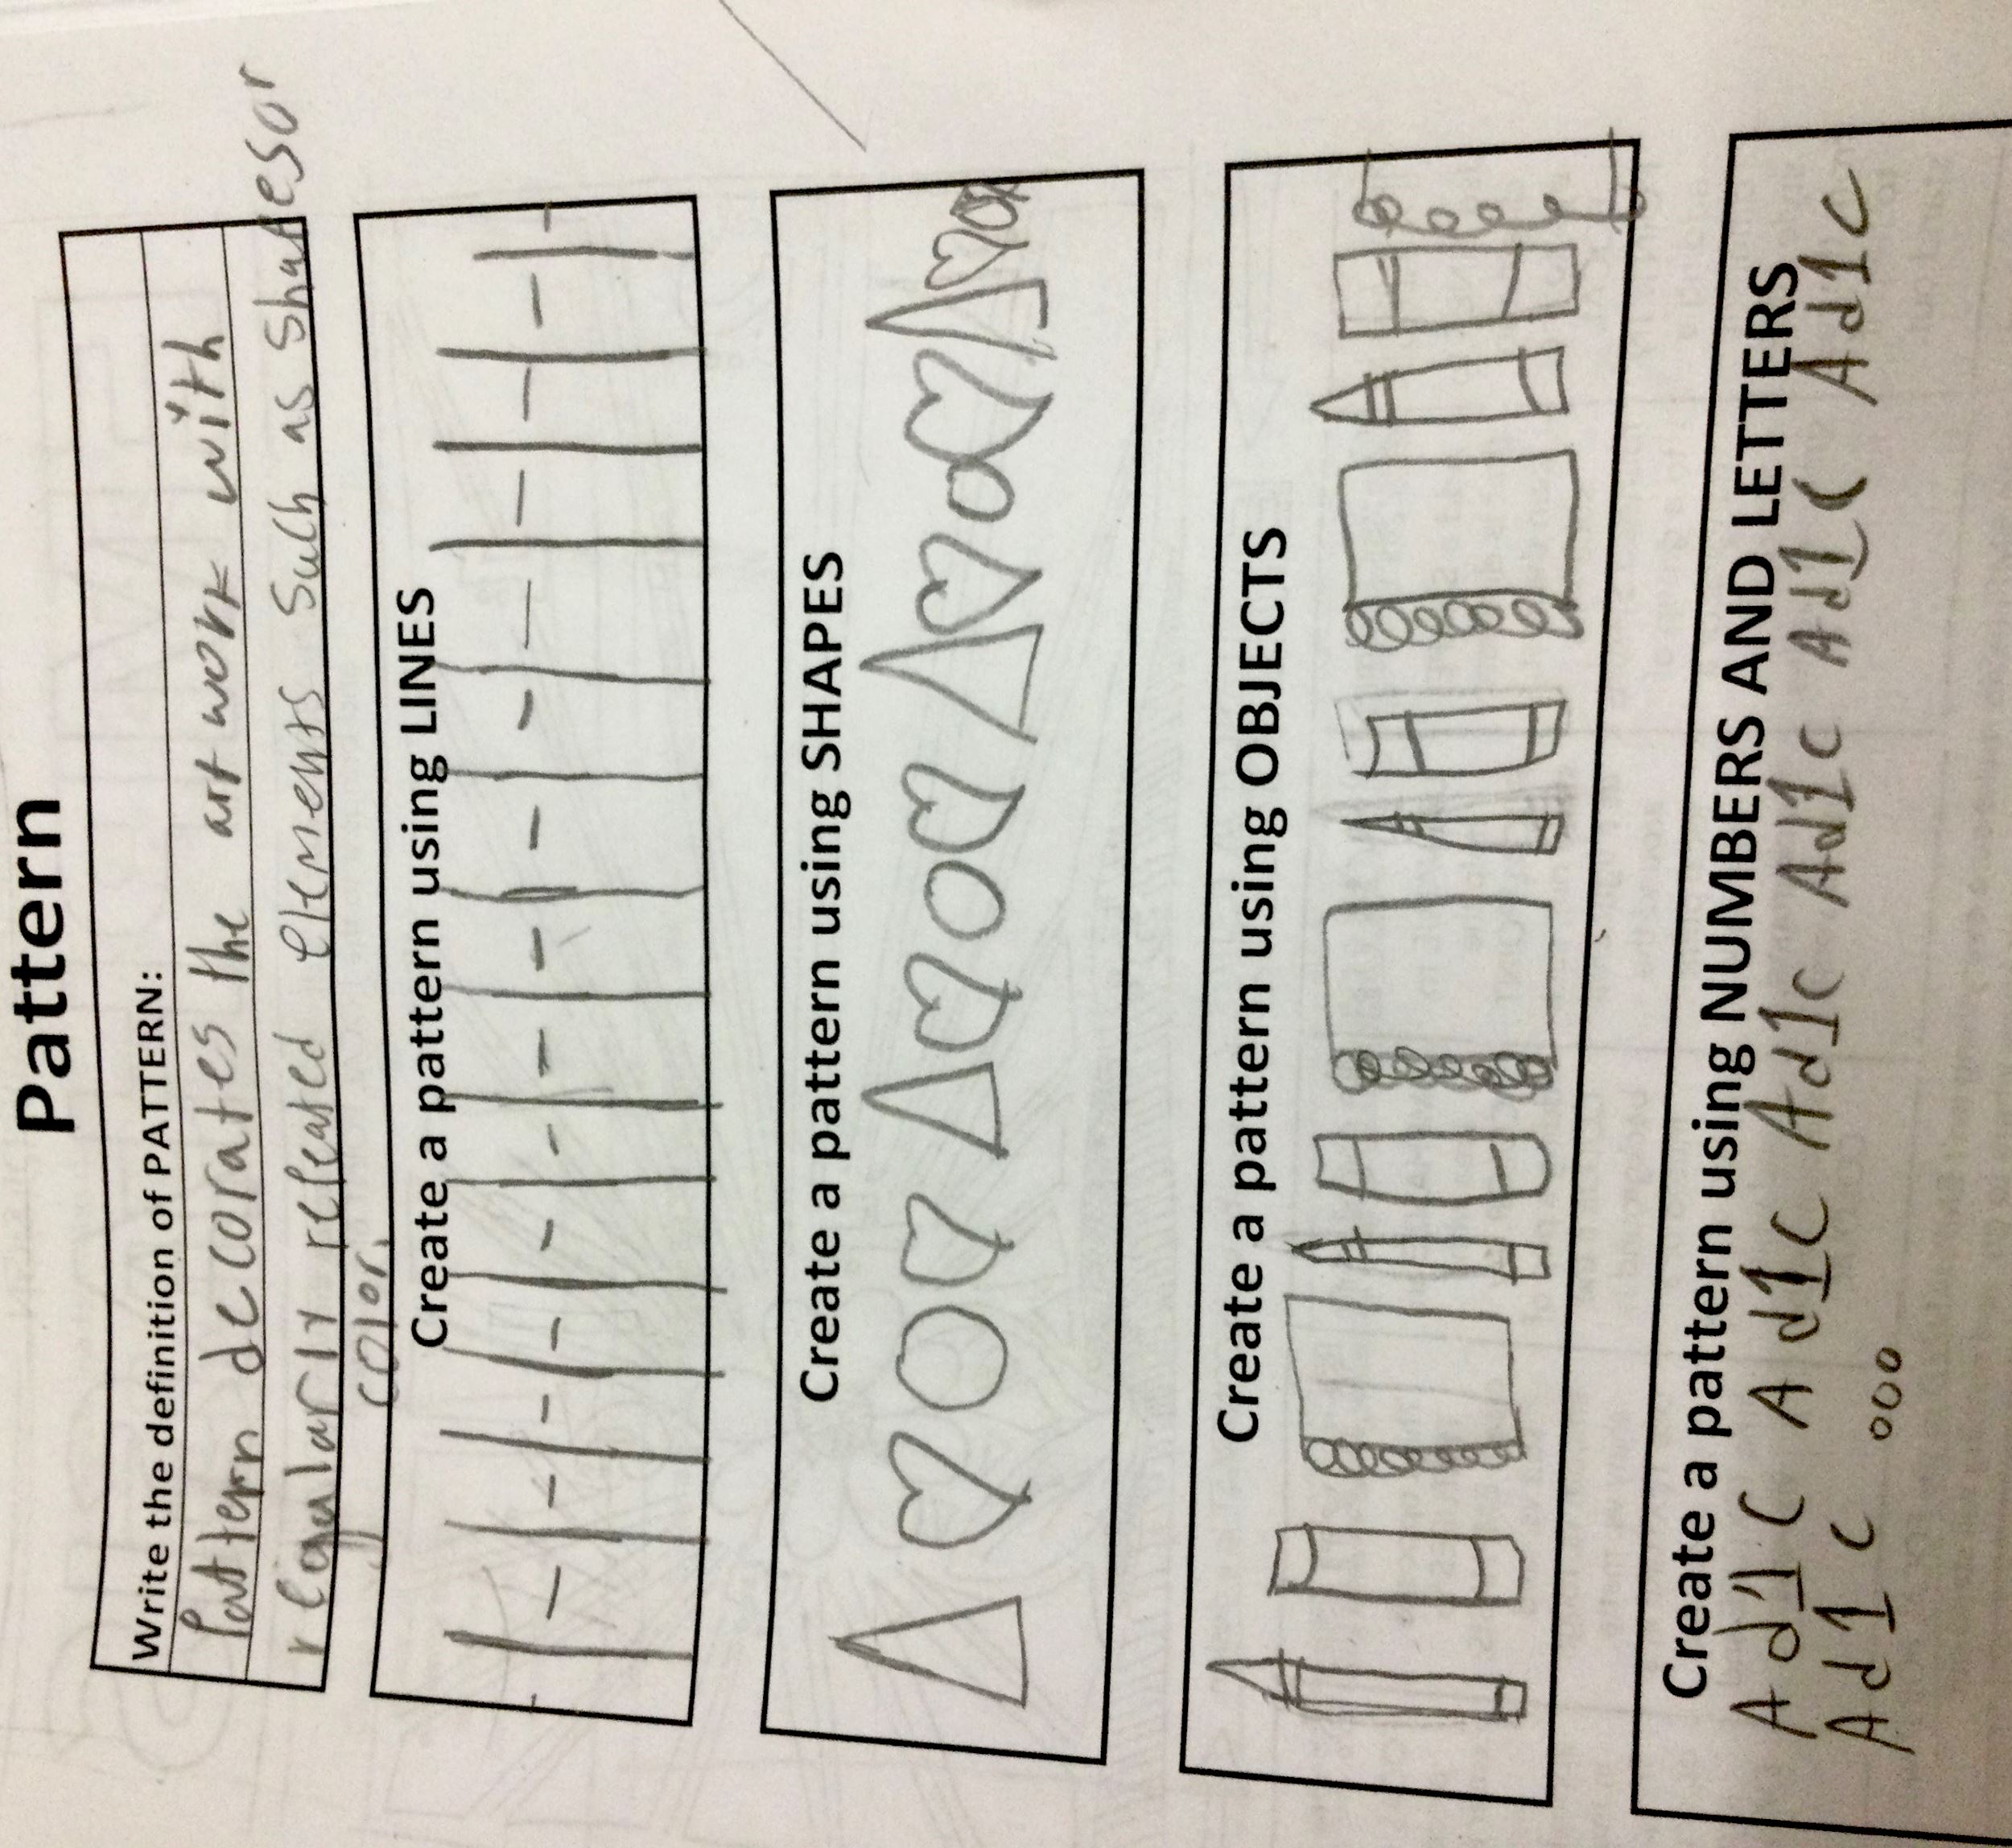 Pattern
Write the definition of PATTERN:
Pattern decorates the art work with
regularly repeated elements such as shapes or
color.
Create a pattern using LINES
Create a pattern using SHAPES
Create a pattern using OBJECTS
Create a pattern using NUMBERS AND LETTERS
Ad1C Ad1C Ad1C Ad1C Ad1C Ad1C
Ad1C ...